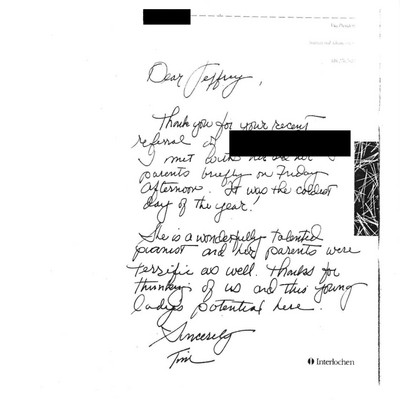 Dear Jeffrey,
Thank you for your recent
referral of
I met with her and her
parents briefly on Friday
afternoon. It was the coldest
day of the year!
She is a wonderfully talented
pianist and her parents were
terrific as well. Thanks for
thinking of us and this young
ladys potential here.
Sincerely
Tim
Interlochen